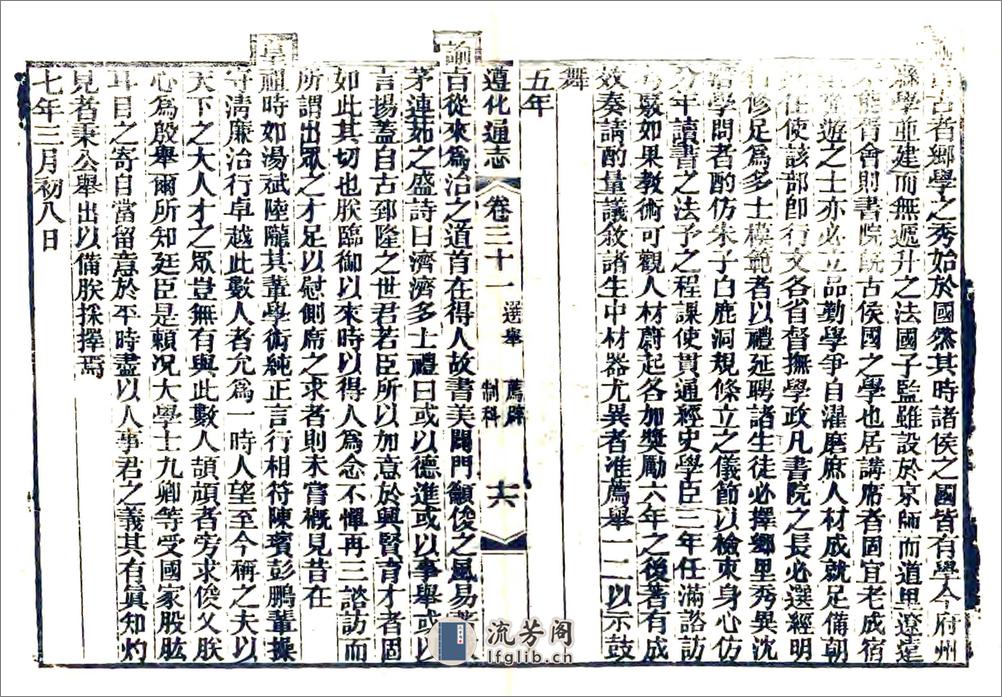 古者鄉學之秀始於國然其時諸侯之國皆有學今府州
縣學並建而無遞升之法國子監雖設於京師而道里遼遠
能胥會則書院既古侯國之學也居講席者固宜老成宿
遊之士亦必立品勤學爭自濯磨庶人材成就足備朝
任使該部卽行文各省督撫學政凡書院之長必選經明
修足爲多士模範者以禮延聘諸生徒必擇鄉里秀異沈
學問者酌仿朱子白鹿洞規條立之儀節以檢束身心仿
分年讀書之法予之程課使貫通經史學臣三年任滿諮訪
覈如果教術可觀人材蔚起各加獎勵六年之後著有成
效奏請酌量議敘諸生中材器尤異者准薦舉一二以示鼓
舞
五年
遵化通志 卷三十一 選舉 薦辟 制科 十六
諭古從來爲治之道首在得人故書美闢門籲俊之風易著
茅連茹之盛詩曰濟濟多士禮曰或以德進或以事舉或以
言揚蓋自古郅隆之世君若臣所以加意於興賢育才者固
如此其切也朕臨御以來時以得人爲念不憚再三諮訪而
所謂出眾之才足以慰側席之求者則未嘗概見昔在
皇祖時如湯斌陸隴其輩學術純正言行相符陳璸彭鵬輩操
守淸廉治行卓越此數人者允爲一時人望至今稱之夫以
天下之大人才之眾豈無有與此數人頡頏者旁求俊乂朕
心爲殷舉爾所知廷臣是賴況大學士九卿等受國家股肱
耳目之寄自當留意於平時盡以人事君之義其有眞知灼
見者秉公舉出以備朕採擇焉
七年三月初八日
流芳閣
lfglib.cn